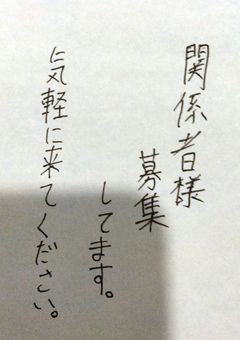 関係者様
募集
してます。
気軽に来てください。